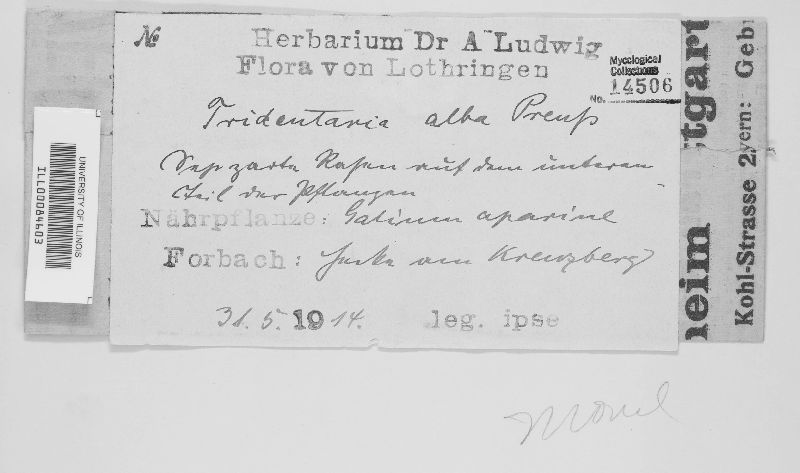 №
Herbarium Dr A Ludwig
Flora von Lothringen
Mycological
Collections
No. 14506
Tridentaria alba Preuß
Sehr zarte Rasen auf dem unteren
Teil der Pflanzen
Nährpflanze: Galium aparine
Forbach: Hecke am Kreuzberg
31. 5. 1914. leg. ipse
UNIVERSITY OF ILLINOIS
ILL00084403
ttgart
heim
Kohl-Strasse 2
yern: Geb